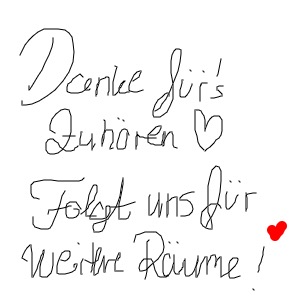 Danke für's
Zuhören ♡
Folgt uns für
weitere Räume!